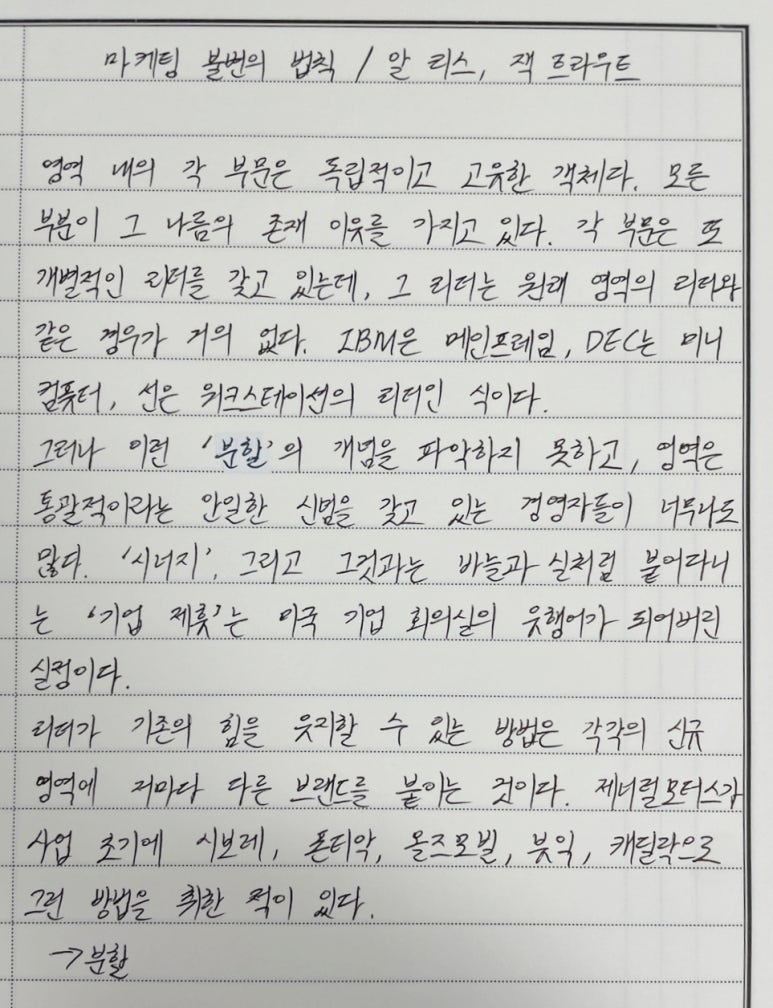 마케팅 불변의 법칙 / 알 리스, 잭 트라우트
영역 내의 각 부문은 독립적이고 고유한 객체다. 모든
부분이 그 나름의 존재 이유를 가지고 있다. 각 부문은 또
개별적인 리더를 갖고 있는데, 그 리더는 원래 영역의 리더와
같은 경우가 거의 없다. IBM은 메인프레임, DEC는 미니
컴퓨터, 선은 워크스테이션의 리더인 식이다.
그러나 이런 '분할'의 개념을 파악하지 못하고, 영역은
통괄적이라는 안일한 신념을 갖고 있는 경영자들이 너무나도
많다. '시너지', 그리고 그것과는 바늘과 실처럼 붙어다니
는 '기업 제휴'는 미국 기업 회의실의 유행어가 되어버린
실정이다.
리더가 기존의 힘을 유지할 수 있는 방법은 각각의 신규
영역에 저마다 다른 브랜드를 붙이는 것이다. 제너럴모터스가
사업 초기에 시보레, 폰티악, 올즈모빌, 뷰익, 캐딜락으로
그런 방법을 취한 적이 있다.
→분할